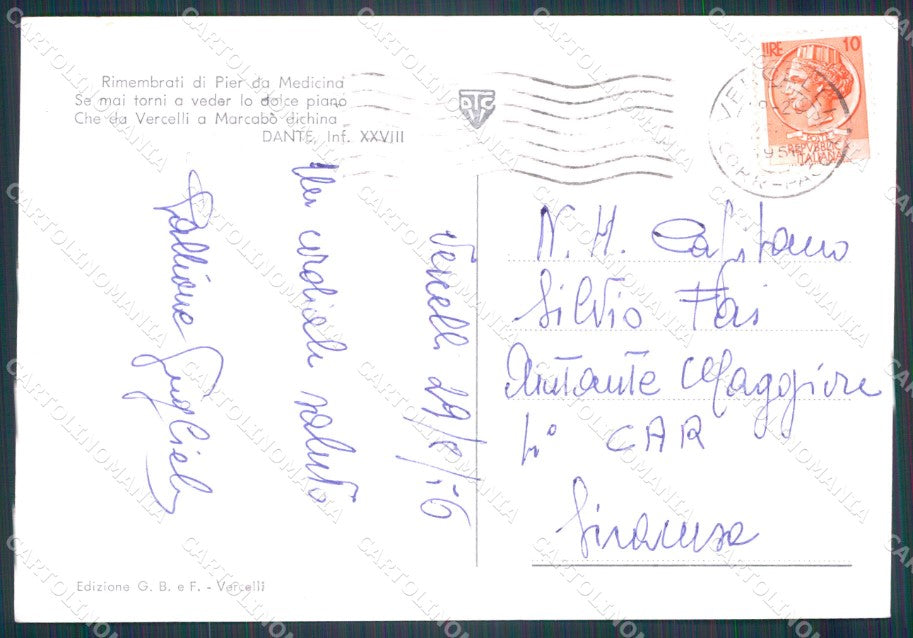 Rimembrati di Pier da Medicina
Se mai torni a veder lo dolce piano
Che da Vercelli a Marcabò dichina
DANTE, Inf. XXVIII
LIRE 10
POSTE
REPVBBLICA
ITALIANA
Vercelli 29/8/56
Un cordiale saluto
Guglielmo
N. H. Capitano
Silvio Fai
Aiutante Maggiore
CAR
Siracusa
Edizione G. B. e F. - Vercelli
CARTOLINOMANIA